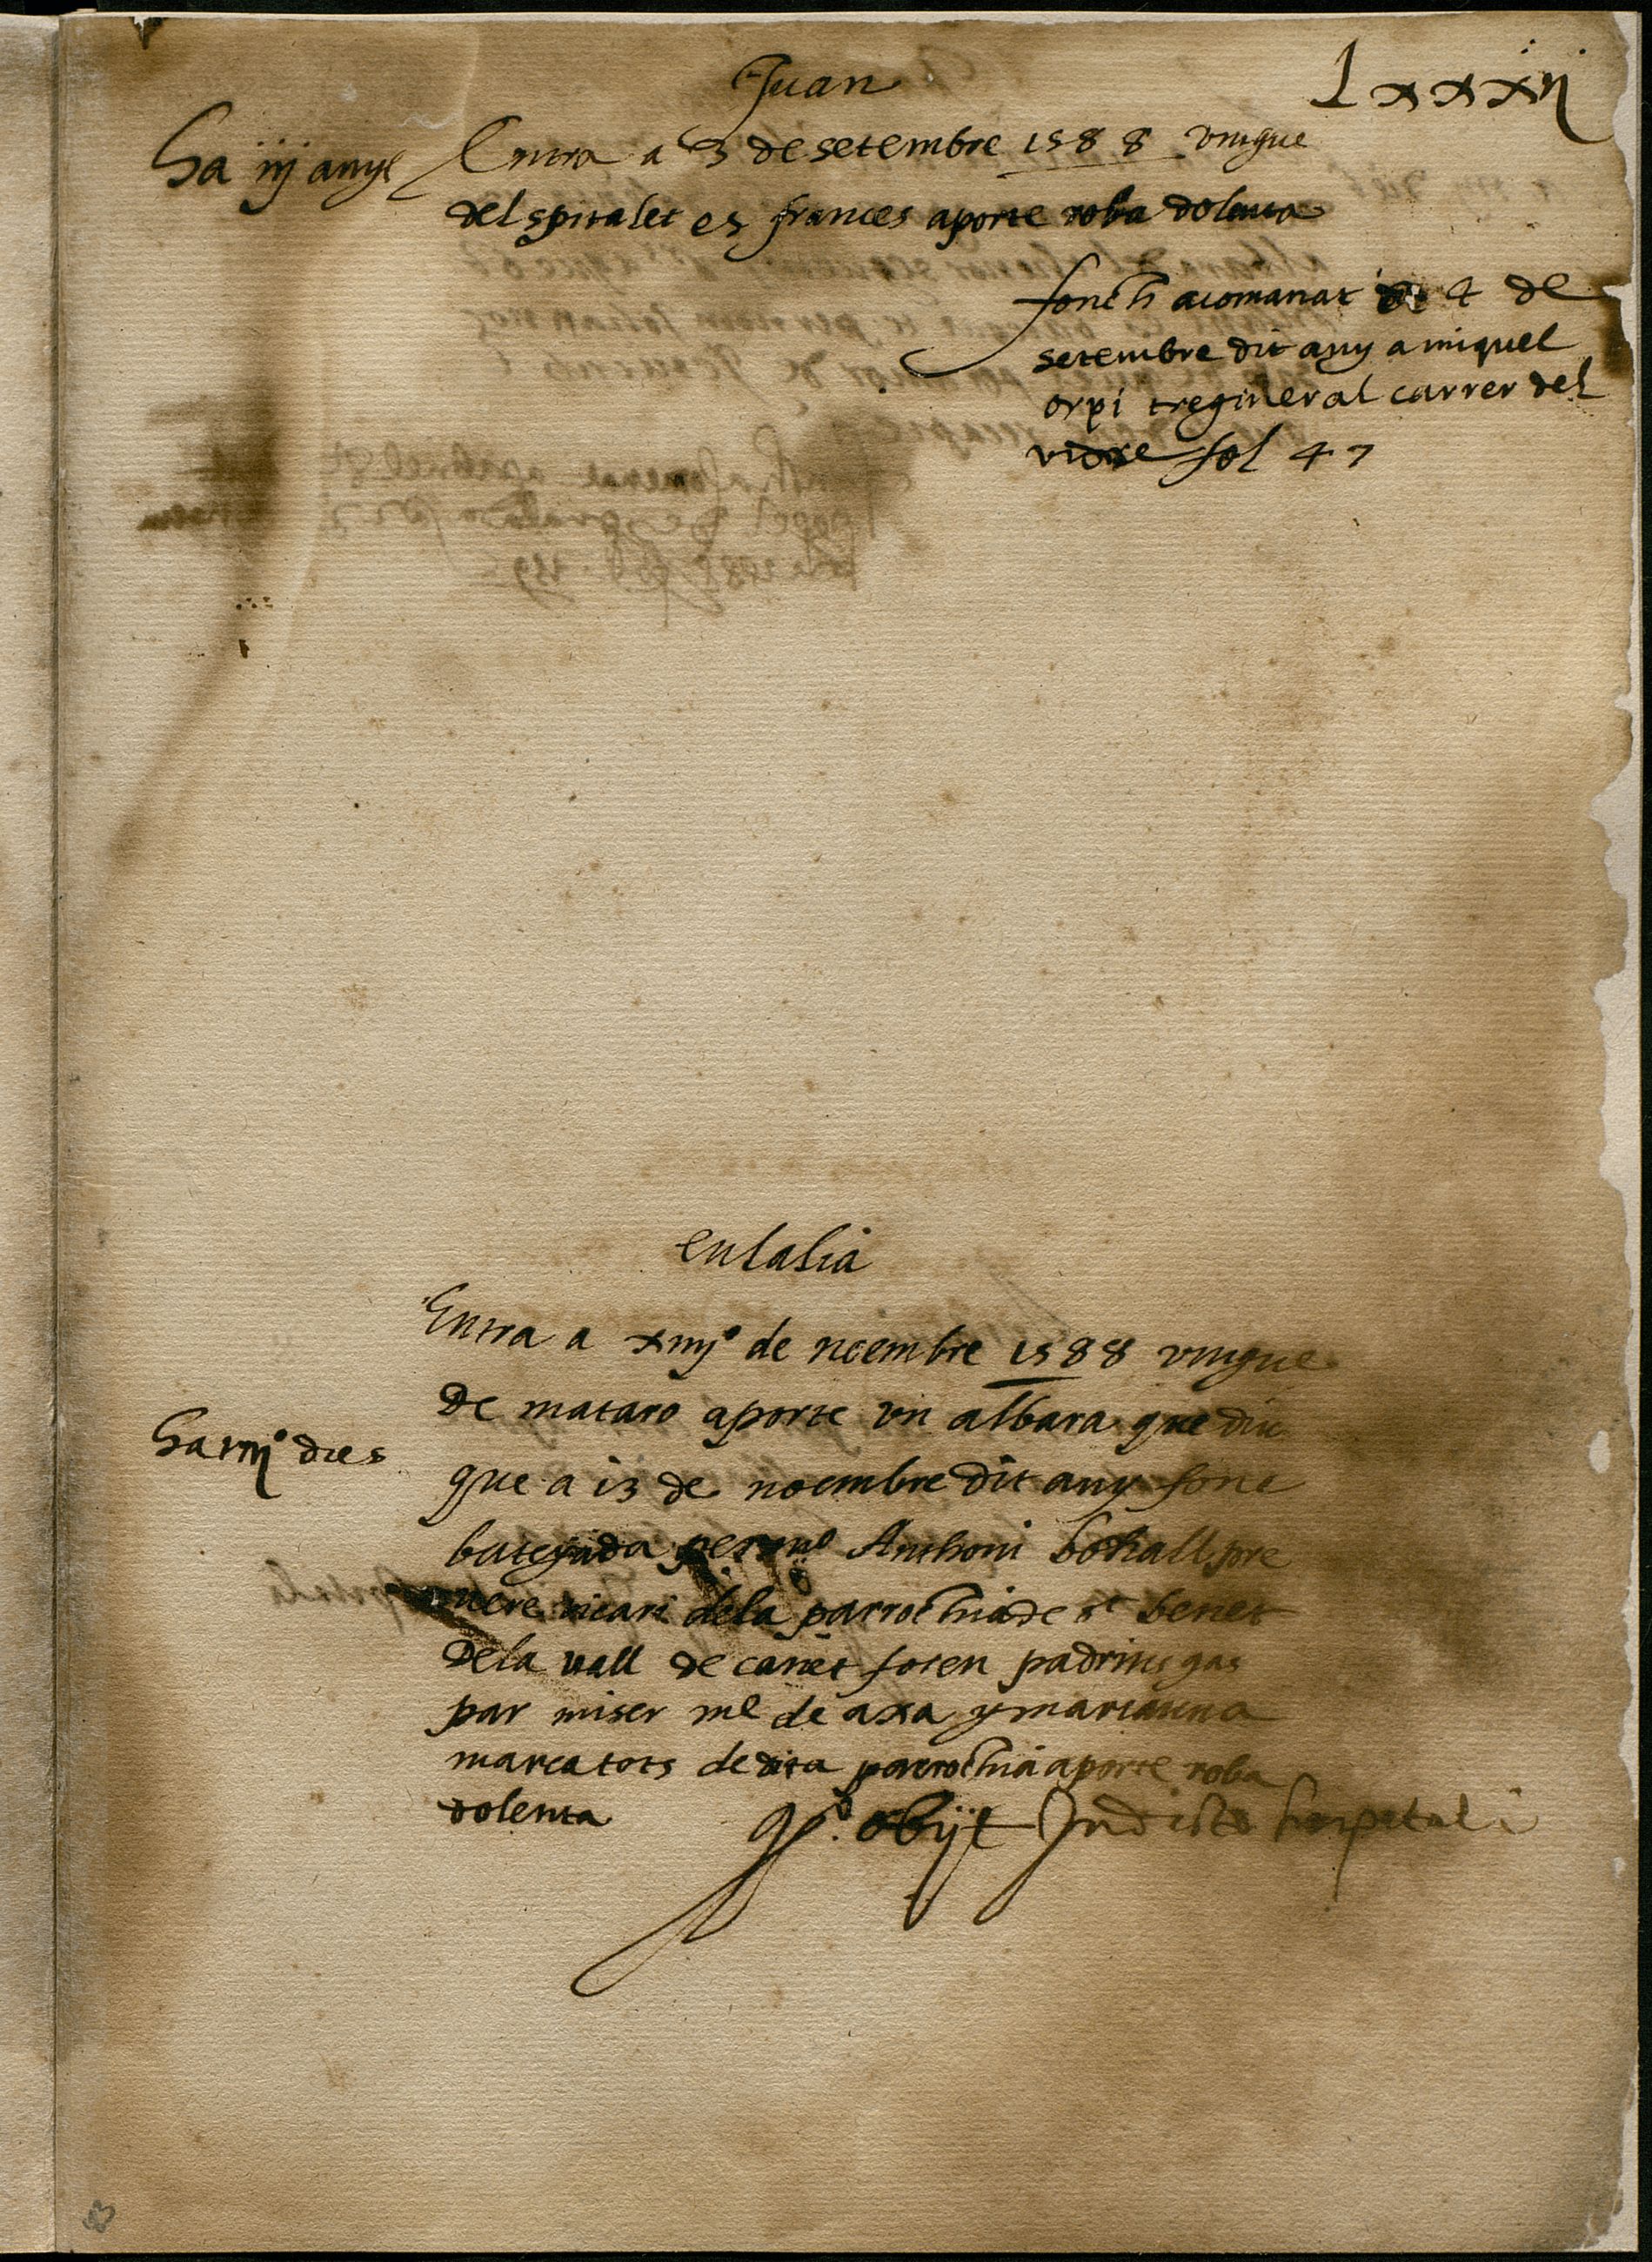 Juan
lxxxij
Ha iij anys
Entra a 3 de setembre 1588 vingue
del spitalet es frances aporte roba dolenta
fonch acomanat a 4 de
setembre dit any a miquel
orpi traginer al carrer del
vidre fol 47
eulalia
Entra a xiiij° de noembre 1588 vingue
de mataro aporte vn albara que diu
Ha viij° dies
que a 13 de noembre dit any fonc
batejada per Anthoni pre
uere vicari de la parrochia de st benet
de la vall de canet foren padrins gas
par miser me de axa y marianna
marca tots de dita parrochia aporte roba
dolenta
obijt In dicto hospitali